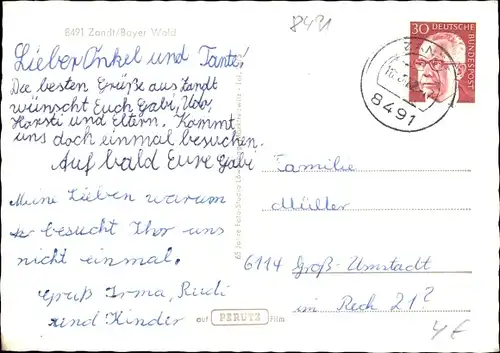 8491 Zandt/Bayer Wald
8491
Lieber Onkel und Tante!
Die besten Grüße aus Zandt
wünscht Euch Gabi, Udo,
Horsti und Eltern. Kommt
uns doch einmal besuchen.
Auf bald Eure Gabi
Meine Lieben warum
besucht Ihr uns
nicht einmal.
Gruß Irma, Rudi
und Kinder
auf PERUTZ Film
30 DEUTSCHE
BUNDESPOST
8491
Familie
Müller
6114 Groß-Umstadt
im Rech 21?